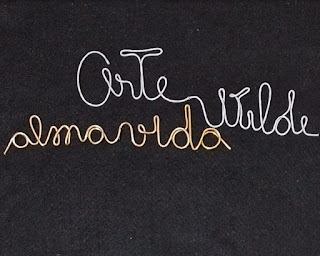 Arte Wilde
almavida